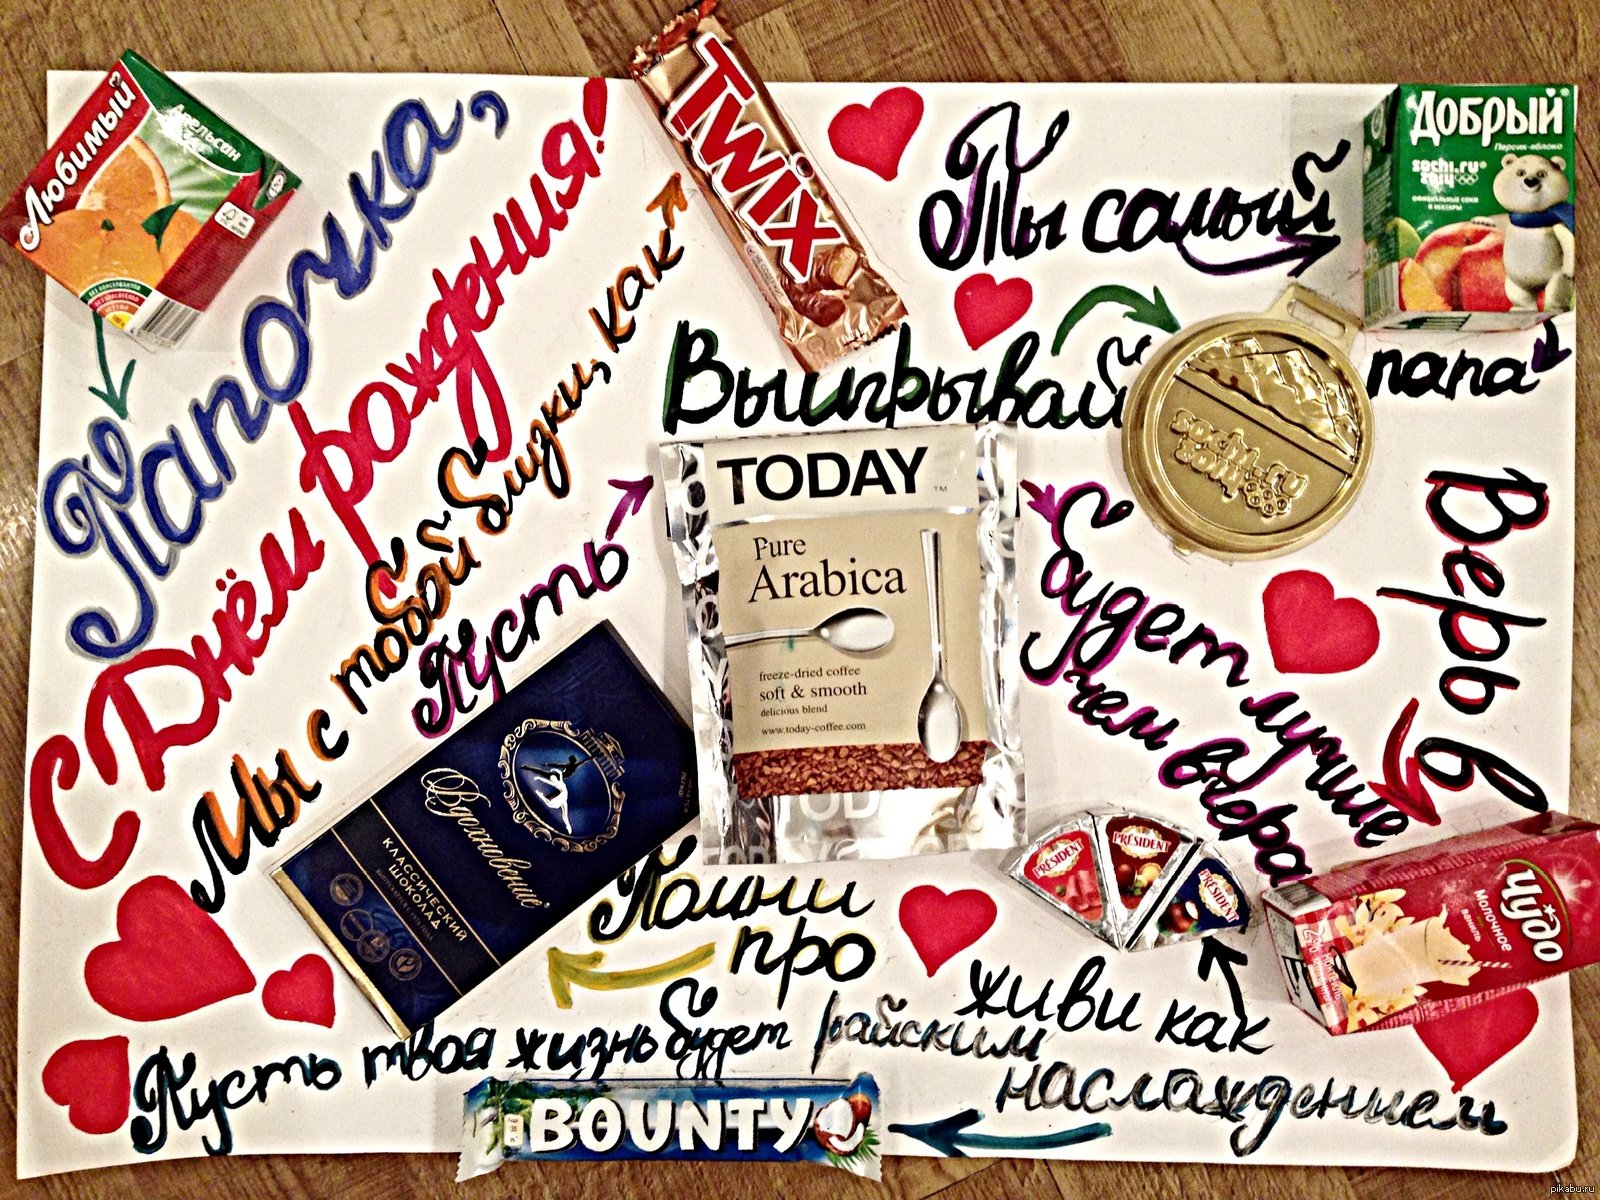 Любимый
Апельсин
Папочка,
С Днём рождения!
Мы с тобой близки, как
TWIX
Ты самый
Добрый
Персик-яблоко
sochi.ru
2014
официальные соки
и нектары
папа
Выигрывай
sochi.ru
2014
Пусть
TODAY
TM
Pure
Arabica
freeze-dried coffee
soft & smooth
delicious blend
www.today-coffee.com
будет лучше
чем вчера
Верь в
Чудо
молочное
ваниль
Помни
про
Вдохновение
КЛАССИЧЕСКИЙ
ШОКОЛАД
живи как
PRÉSIDENT
PRÉSIDENT
PRÉSIDENT
Пусть твоя жизнь будет райским
наслаждением
BOUNTY
pikabu.ru